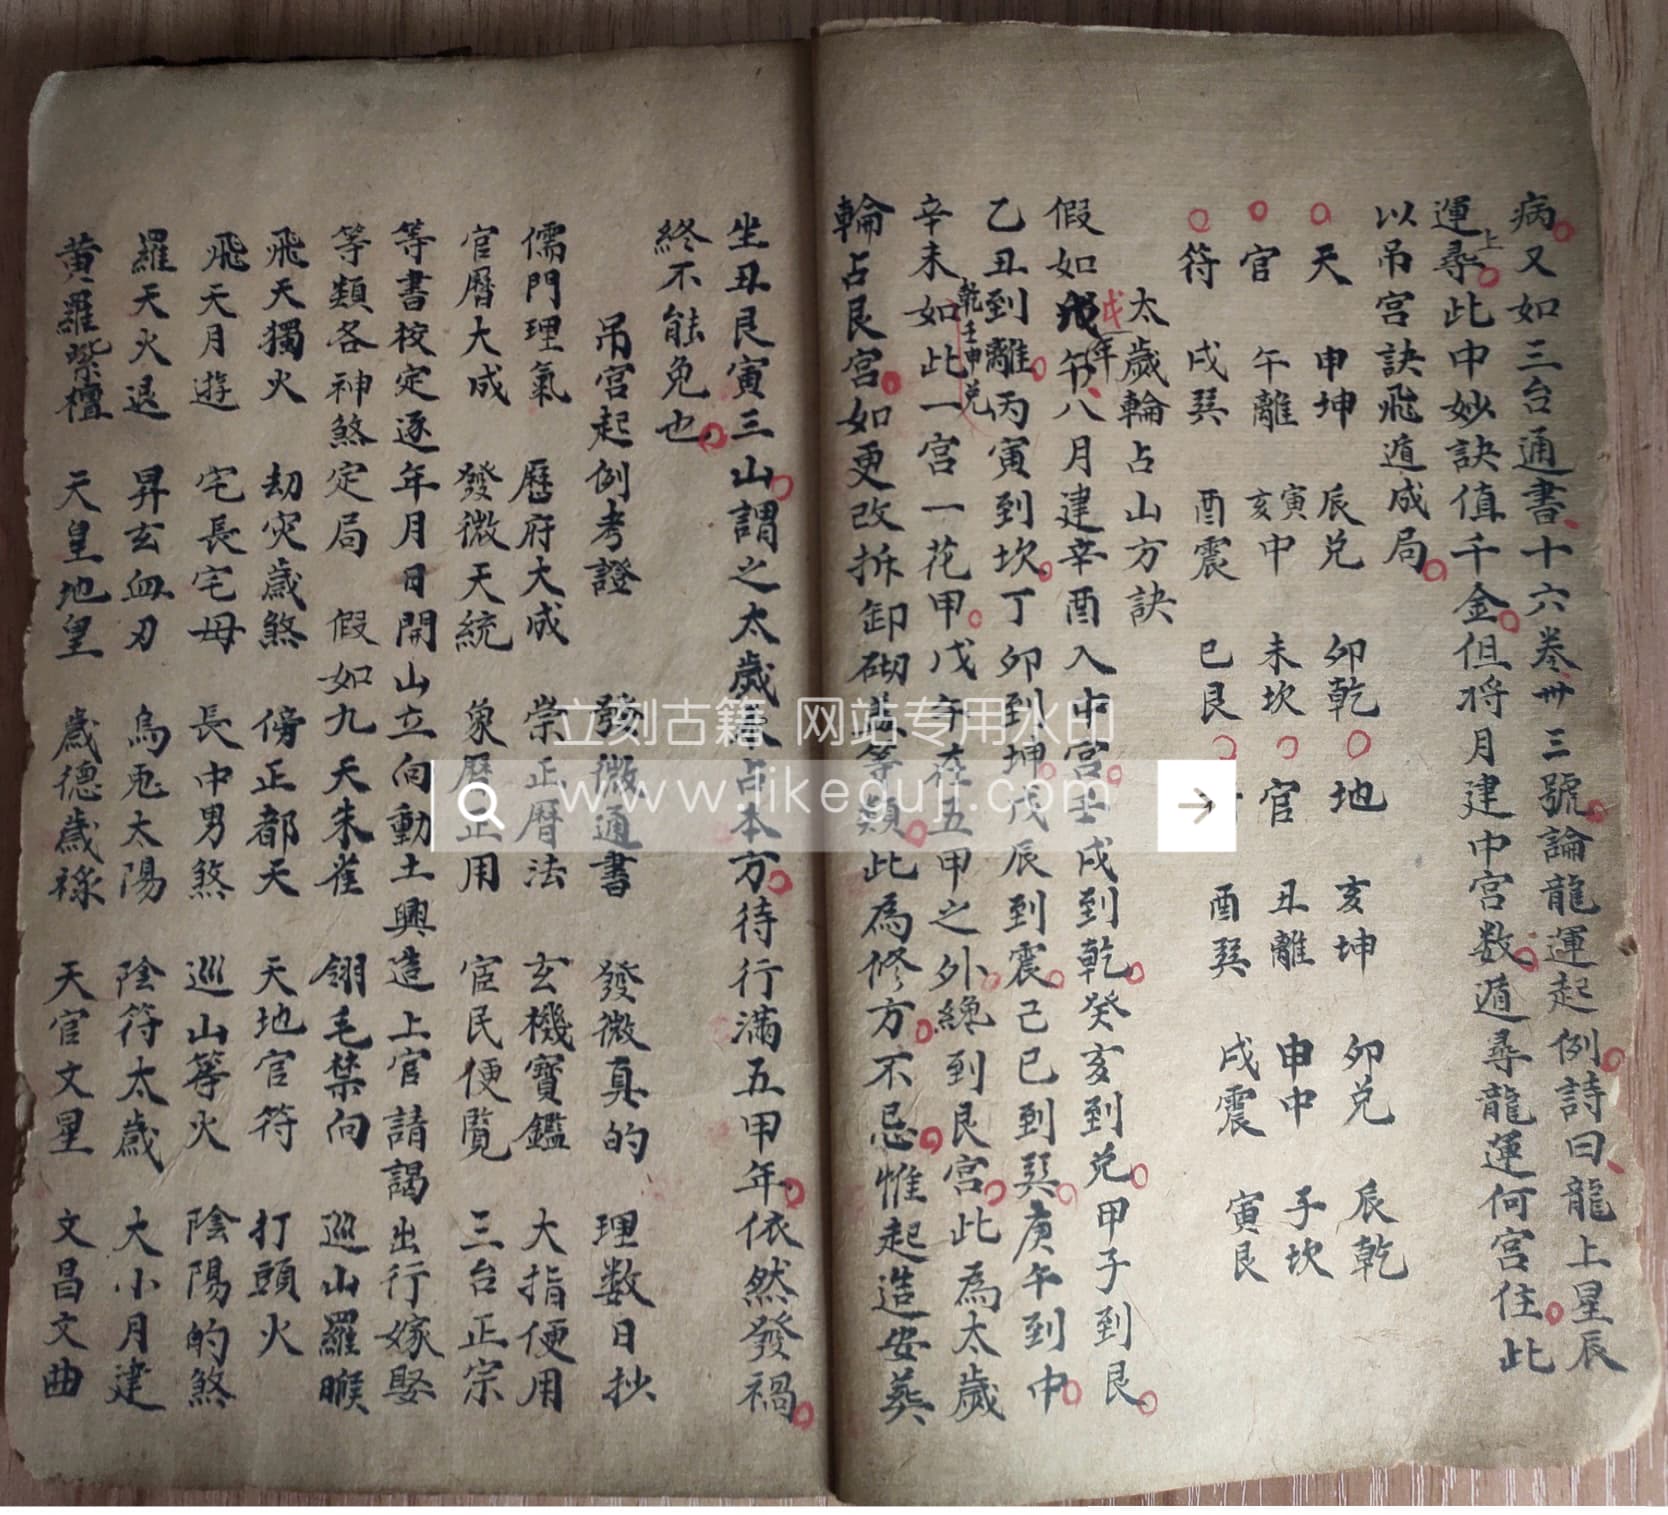 病又如三台通書十六卷卅三號論龍運起例詩曰龍上星辰
運上尋此中妙訣值千金但將月建中宮数遁尋龍運何宮住此
以吊宮訣飛遁成局
天 申坤 辰兑 卯乾 地 亥坤 卯兑 辰乾
官 午離 寅亥中 未坎 官 丑離 申中 子坎
符 戌巽 酉震 巳艮 酉巽 戌震 寅艮
太歲輪占山方訣
假如戊午年八月建辛酉入中宮壬戌到乾癸亥到兑甲子到艮
乙丑到離丙寅到坎丁卯到坤戊辰到震己巳到巽庚午到中
辛未乾壬申兑如此一宮一花甲戊午在五甲之外纔到艮宮此為太歲
輪占艮宮如更改拆卸砌等類此為修方不忌惟起造安葬
坐丑艮寅三山謂之太歲占本方待行滿五甲年依然發禍
終不能免也
吊宮起例考證 發微通書 發微真的 理数日抄
儒門理氣 曆府大成 崇正曆法 玄機寶鑑 大指便用
官曆大成 發微天統 象曆正用 宦民便覧 三台正宗
等書校定逐年月日開山立向動土興造上官請謁出行嫁娶
等類各神煞定局 假如九天朱雀 翎毛禁向 巡山羅睺
飛天獨火 劫灾歲煞 傍正都天 天地官符 打頭火
飛天月遊 宅長宅母 長中男煞 巡山等火 陰陽的煞
羅天火退 昇玄血刃 烏兎太陽 陰符太歲 大小月建
黄羅紫檀 天皇地皇 歲德歲祿 天官文星 文昌文曲
立刻古籍 网站专用水印
www.likeguji.com